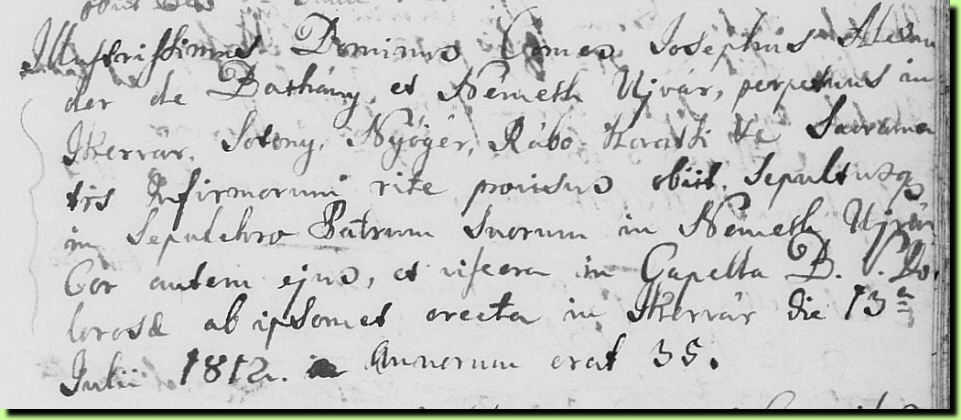 Illustrissimus Dominus Comes Josephus Alexan
der de Bathány, et Németh Ujvár, perpetuus in
Ikervár, Sotony, Nyögér, Rába Kovátsi &c Sacramen
tis Infirmorum rite provisus obiit, Sepultusq
in Sepulchro Patrum Suorum in Németh Ujvár
Cor autem ejus, et viscera in Capella B. V. Do
lorosæ ab ipsomet erecta in Ikervár die 13a
Julii 1812. Annorum erat 35.